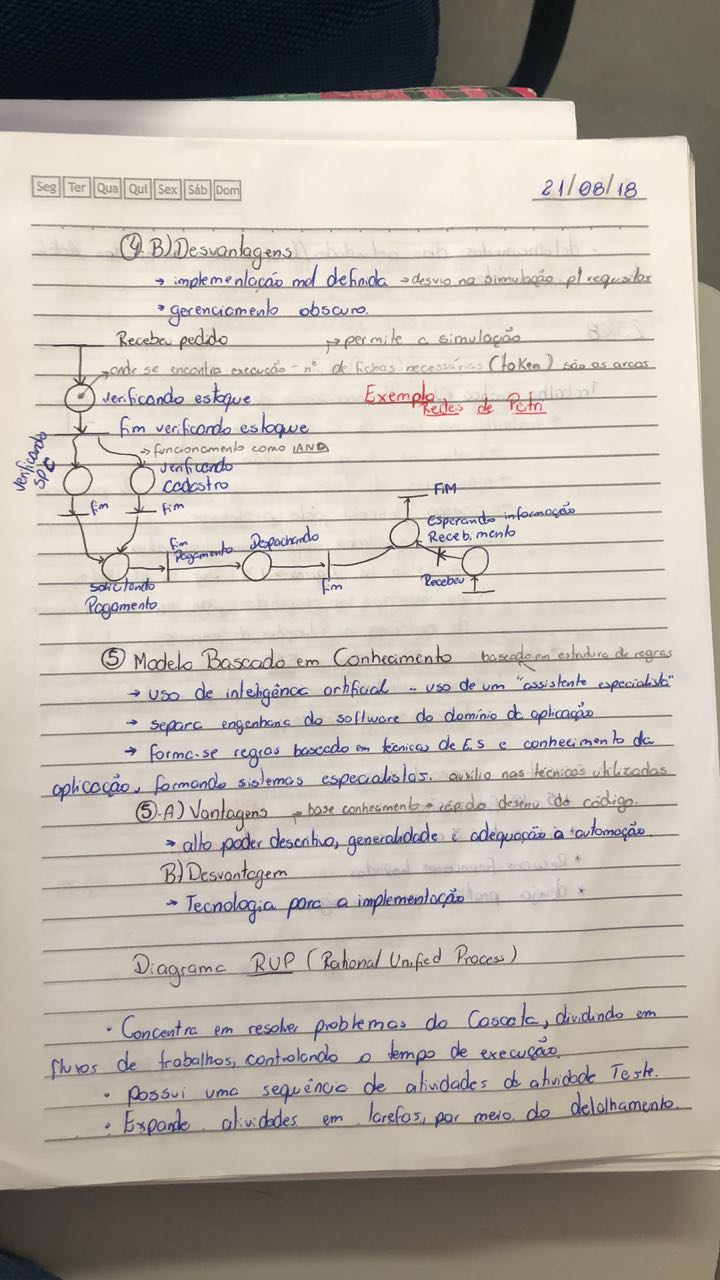 Seg Ter Qua Qui Sex Sáb Dom
21/08/18
④.B) Desvantagens
→ implementação mal definida → desvio na simulação p/ requisitos
→ gerenciamento obscuro.
Recebeu pedido → permite a simulação
→ onde se encontra execução - nº de fichas necessárias (token) são os arcos
verificando estoque
Exemplo
Redes de Petri
fim verificando estoque
→ funcionamento como AND
verificando SPC
verificando cadastro
fim fim
FIM
Esperando informação
Recebimento
fim
Pagamento
Despachando
solicitando
Pagamento
fim
Recebeu
⑤ Modelo Baseado em Conhecimento baseado em estrutura de regras
→ uso de inteligência artificial - uso de um "assistente especialista"
→ separa engenharia do software do domínio da aplicação
→ forma-se regras baseado em técnicas de E.S e conhecimento da
aplicação, formando sistemas especialistas. auxílio nas técnicas utilizadas
⑤.A) Vantagens → base conhecimento → rápido desenv do código.
→ alto poder descritivo, generalidade e adequação à automação
B) Desvantagem
→ Tecnologia para a implementação
Diagrama RUP (Rational Unified Process)
• Concentra em resolver problemas do Cascata, dividindo em
fluxos de trabalhos, controlando o tempo de execução.
• Possui uma sequência de atividades de atividade Teste.
• Expande atividades em tarefas, por meio do detalhamento.